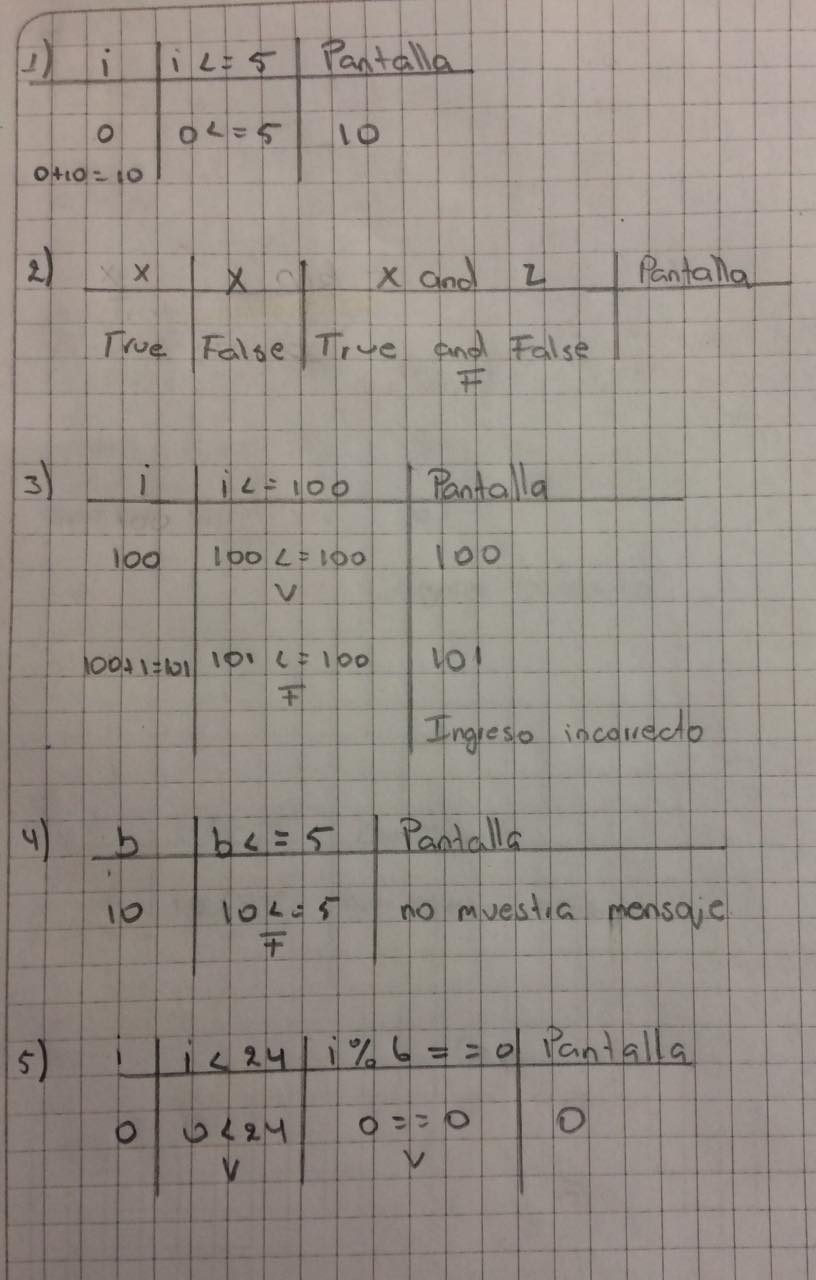 1) i | i <= 5 | Pantalla
0 | 0 <= 5 | 10
0+10=10
2) x | x | x and z | Pantalla
True | False | True and False
F
3) i | i <= 100 | Pantalla
100 | 100 <= 100 | 100
V
100+1=101 | 101 <= 100 | 101
F
Ingreso incorrecto
4) b | b <= 5 | Pantalla
10 | 10 <= 5 | no muestra mensaje
F
5) i | i < 24 | i % 6 == 0 | Pantalla
0 | 0 < 24 | 0 == 0 | 0
V V